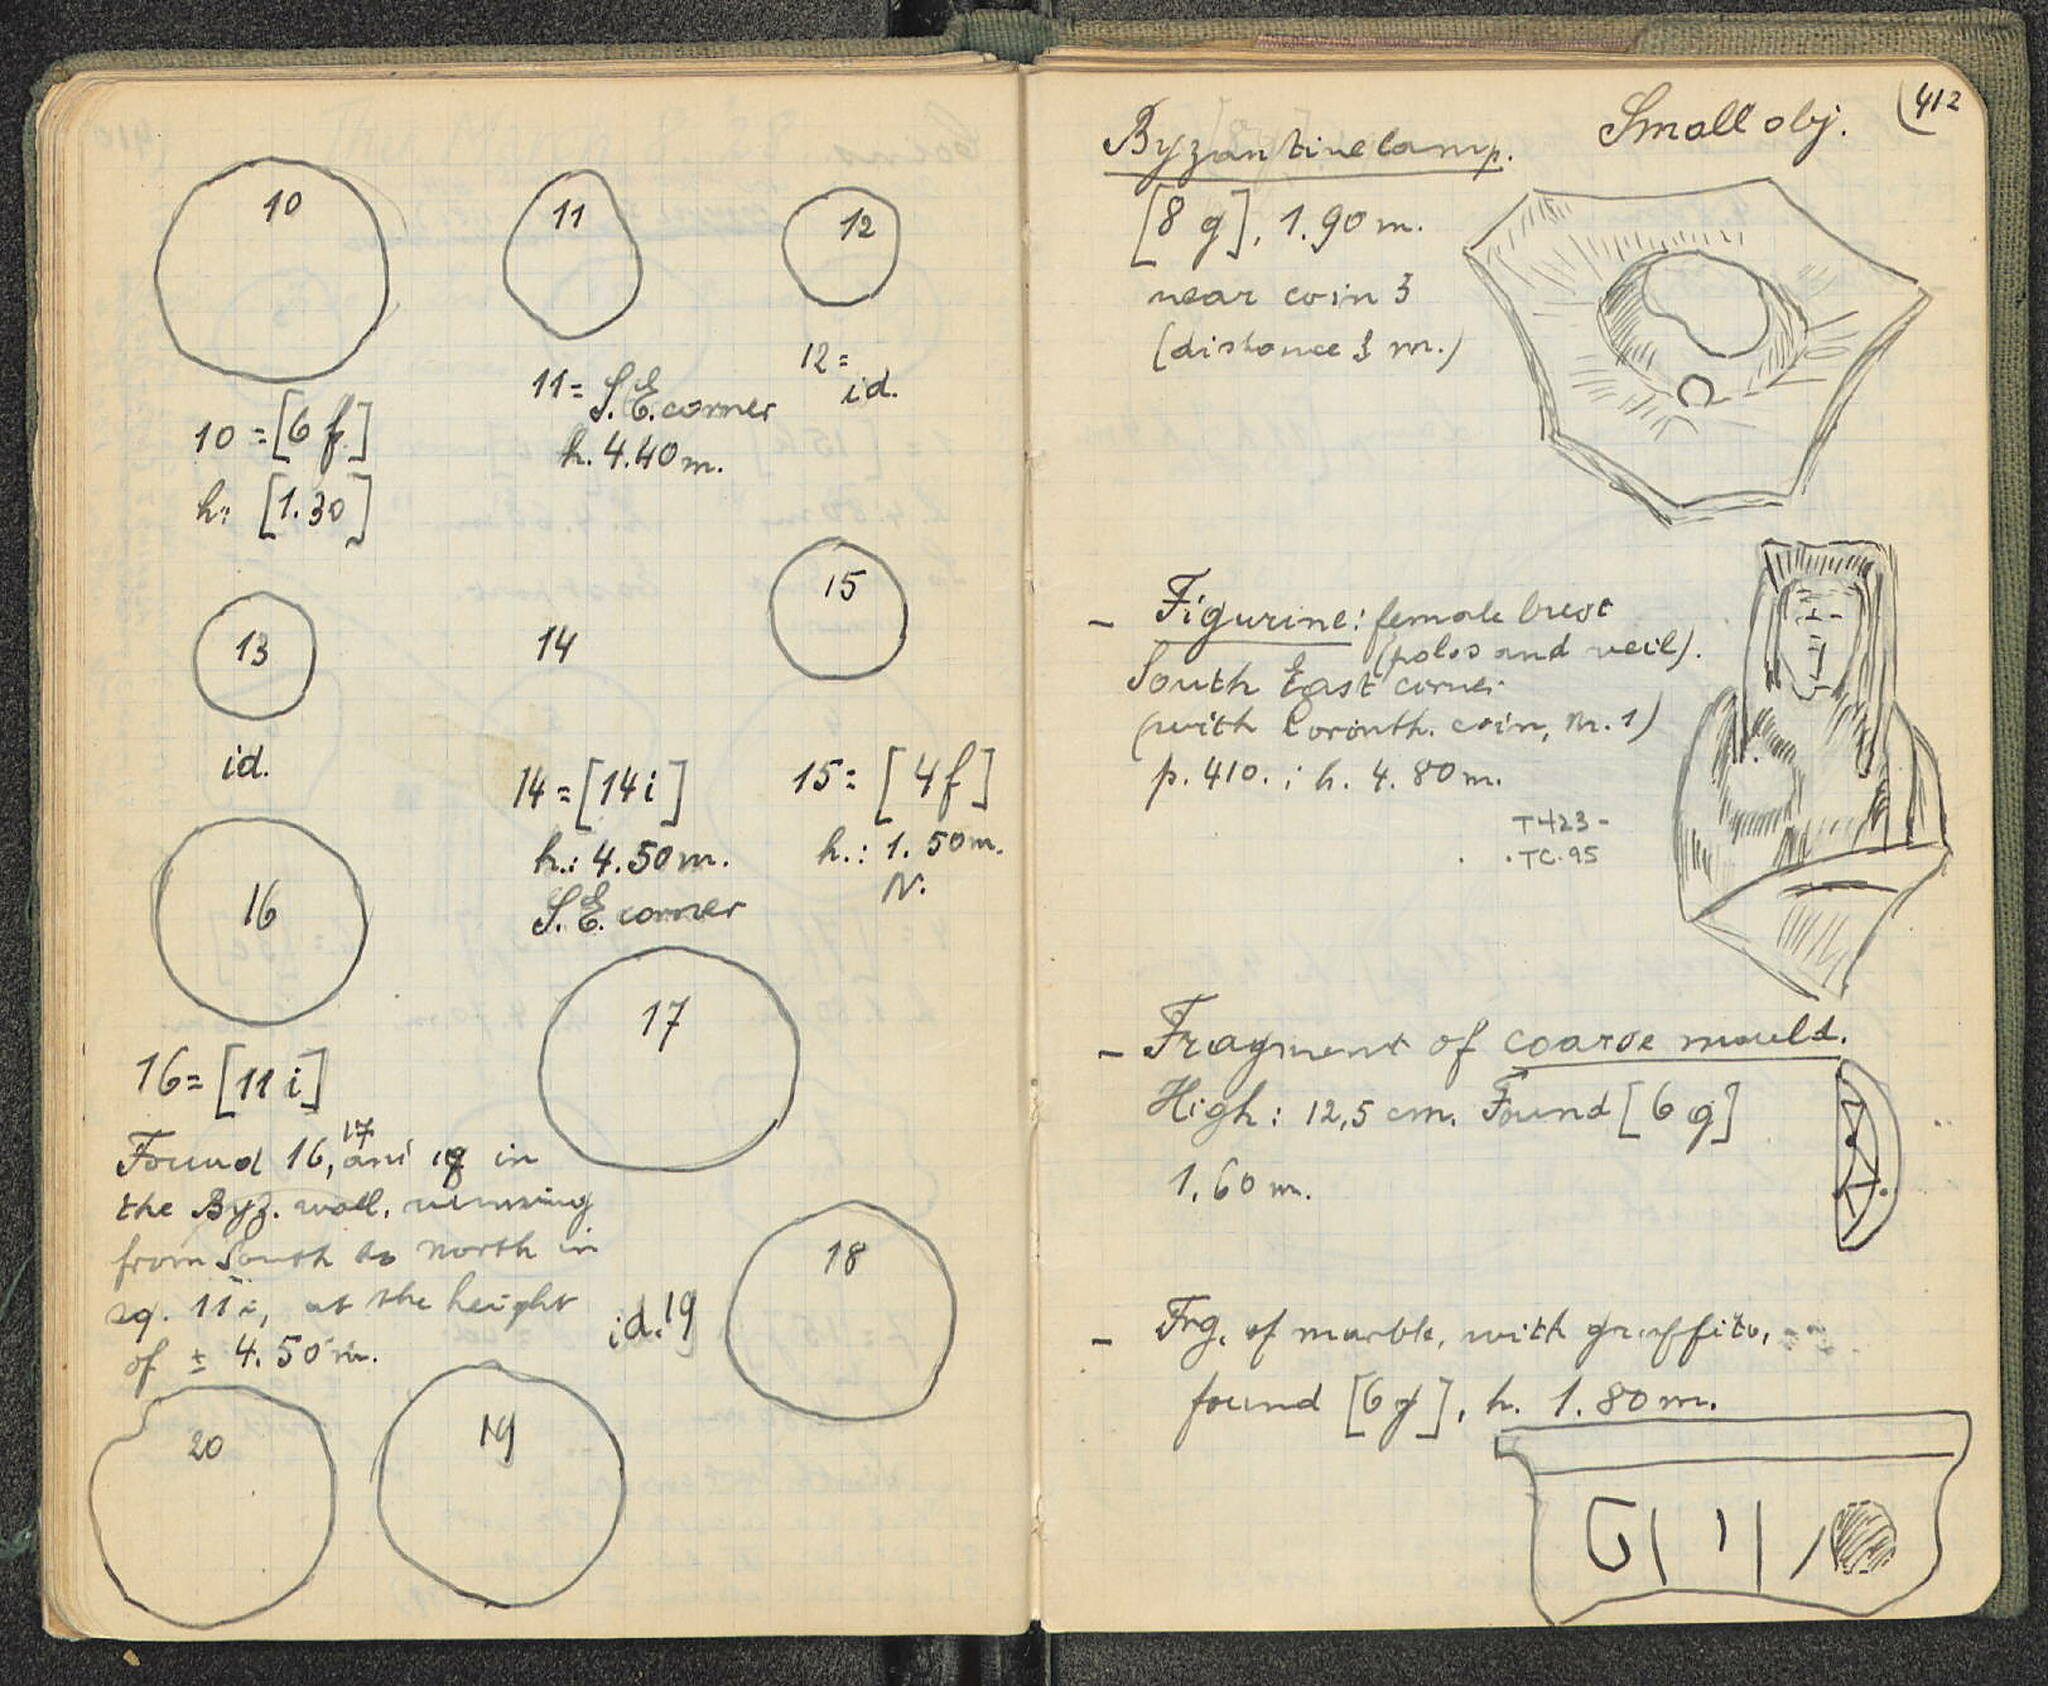 10
11
12
10 = [6 f]
h: [1.30]
11 = S.E. corner
h. 4.40 m.
12 =
id.
13
id.
14
14 = [14 i]
h.: 4.50 m.
S.E. corner
15
15 = [4 f]
h.: 1.50 m.
N.
16
16 = [11 i]
17
Found 16, 17 and 19 in
the Byz. wall, running
from South to north in
sq. 11 i, at the height
of ± 4.50 m.
18
id. 19
20
19
412
Small obj.
Byzantine lamp.
[8 g], 1.90 m.
near coin 3
(distance 3 m.)
- Figurine: female bust
(polos and veil).
South East corner
(with Corinth. coin, n. 1)
p. 410. ; h. 4.80 m.
T423-
TC.95
- Fragment of coarse mould.
High: 12,5 cm. Found [6 g]
1.60 m.
- Frg. of marble, with graffito,
found [6 g], h. 1.80 m.